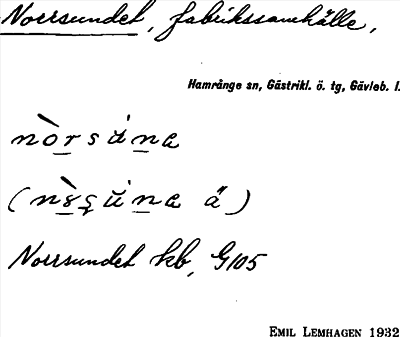 Norrsundet, fabrikssamhälle,
Hamrånge sn, Gästrikl. ö. tg, Gävleb. l.
nòrsu̇na
( a̋ )
Norrsundet kb, G105
EMIL LEMHAGEN 1932